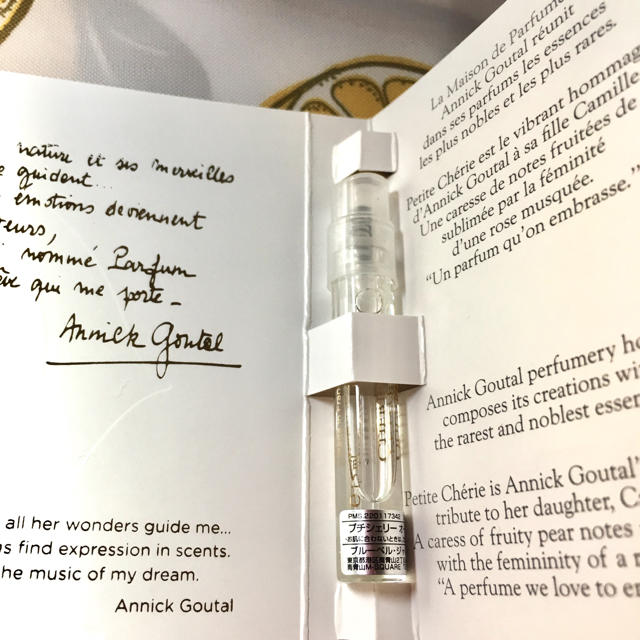 nature et ses merveilles
guident...
émotions deviennent
nommé Parfum
qui me porte -
Annick Goutal
all her wonders guide me...
find expression in scents.
the music of my dream.
Annick Goutal
PMS.220117342
プチシェリー オー
ブルーベル・ジャ
東京都港区南青山2丁
南青山M-SQUARE
La Maison de Parfums
Annick Goutal réunit
dans ses parfums les essences
les plus nobles et les plus rares.
Petite Chérie est le vibrant hommage
d'Annick Goutal à sa fille Camille
Une caresse de notes fruitées de
sublimée par la féminité
d'une rose musquée.
“Un parfum qu'on embrasse.”
Annick Goutal perfumery
composes its creations
the rarest and noblest
Petite Chérie is Annick Goutal'
tribute to her daughter,
A caress of fruity pear notes
with the femininity of a
“A perfume we love to